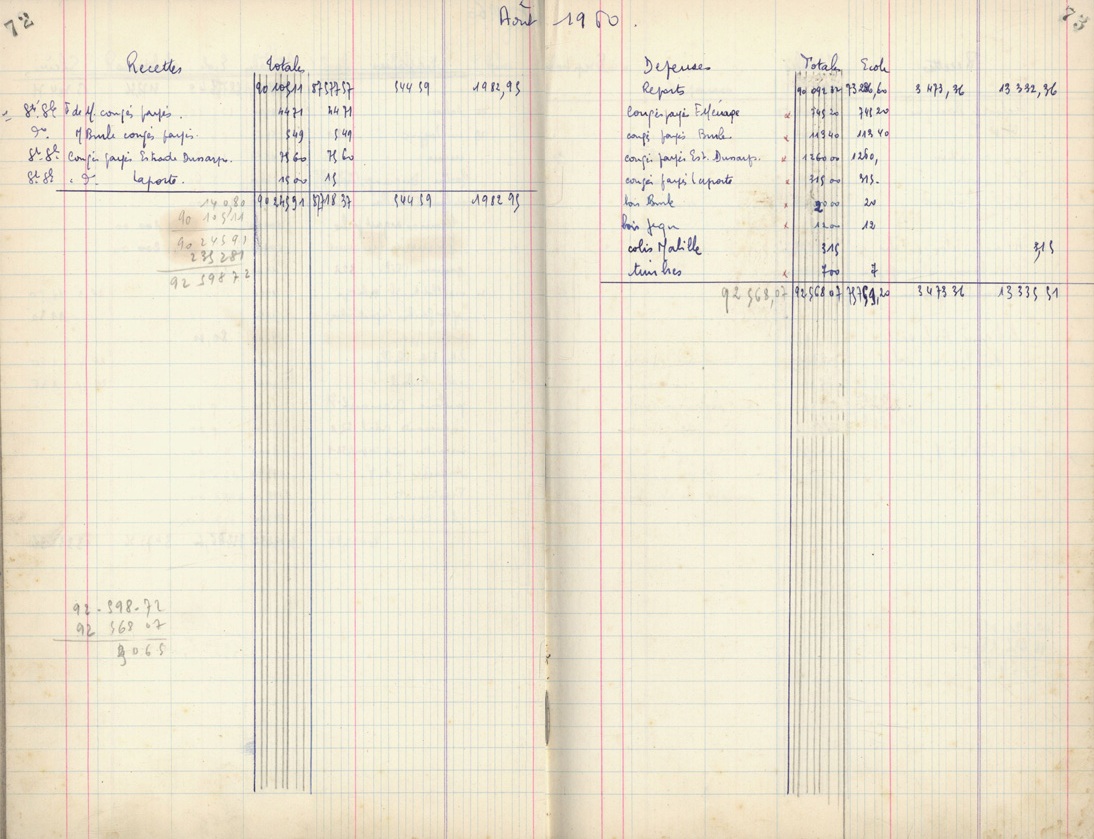 72
Août 1960.
73
Recettes Totales
90 105 11 87577 57 544 59 1982,95
F de M. congés payés. 44 71 44 71
do M Burle congés payés. 5 49 5 49
Congés payés Estrade Dussarp. 75 60 75 60
do Laporte. 15 00 15
90 245 91 87718 37 544 59 1982 95
140,80
90 105 11
90 245 91
2 352 81
92 598 72
92.598.72
92 568 07
3065
Depenses Totales Ecole
Reports 90 092 87 3 473,36 13 332,36
Congés payés F. Ménage 745 20 745 20
congé payés Burle. 113 40 113 40
congé payés Est. Dussarp. 1260 00 1260,
congé payés Laporte 315 00 315.
bois Burle 20 00 20
bois 12 00 12
colis Matille 3 15 3,15
timbres 7 00 7
92 568,07 92 568 07 3 473 36 13 335 51